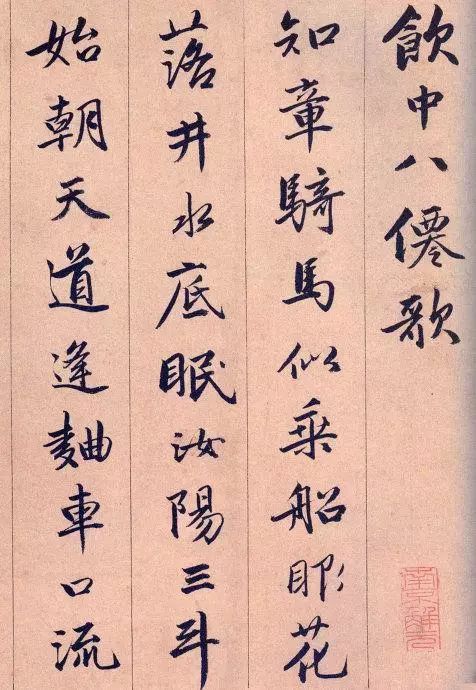 飲中八僊歌
知章騎馬似乗船眼花
落井水底眠汝陽三斗
始朝天道逢麯車口流